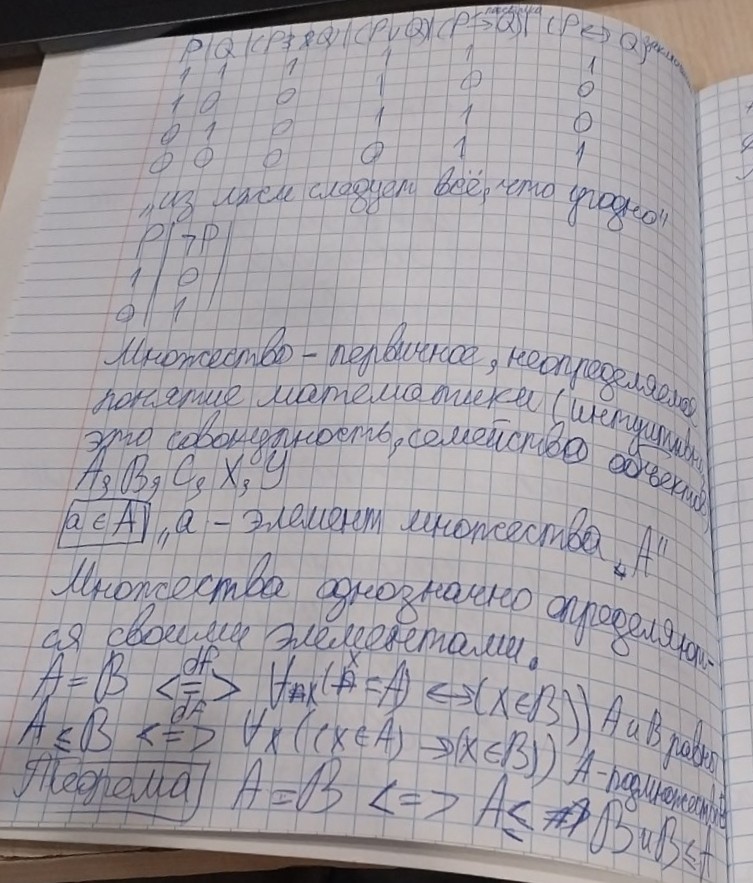 P|Q|(P & Q)|(P∨Q)|(P→Q)|(P↔Q)
1 1 1 1 1 1
1 0 0 1 0 0
0 1 0 1 1 0
0 0 0 0 1 1
„из лжи следует всё, что угодно"
P|¬P|
1|0
0|1
Множество – первичное, неопределяемое
понятие математики (интуитивно,
это совокупность, семейство объектов)
A, B, C, X, Y
a ∈ A „a – элемент множества „A"
Множества однозначно определяют-
ся своими элементами.
A = B <=df=> ∀x(x = A) <=>(x∈B)) A и B равны
A ⊆ B <=df=> ∀x((x∈A) →(x∈B)) A-подмножество B
Теорема A = B <=> A ⊆ B и B ⊆ A